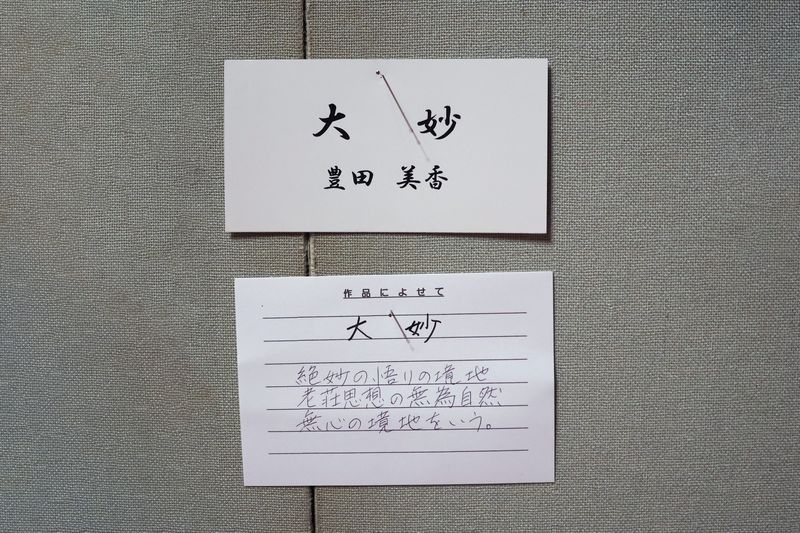 大 妙
豊田 美香
作品によせて
大 妙
絶妙の悟りの境地
老荘思想の無為自然
無心の境地をいう。